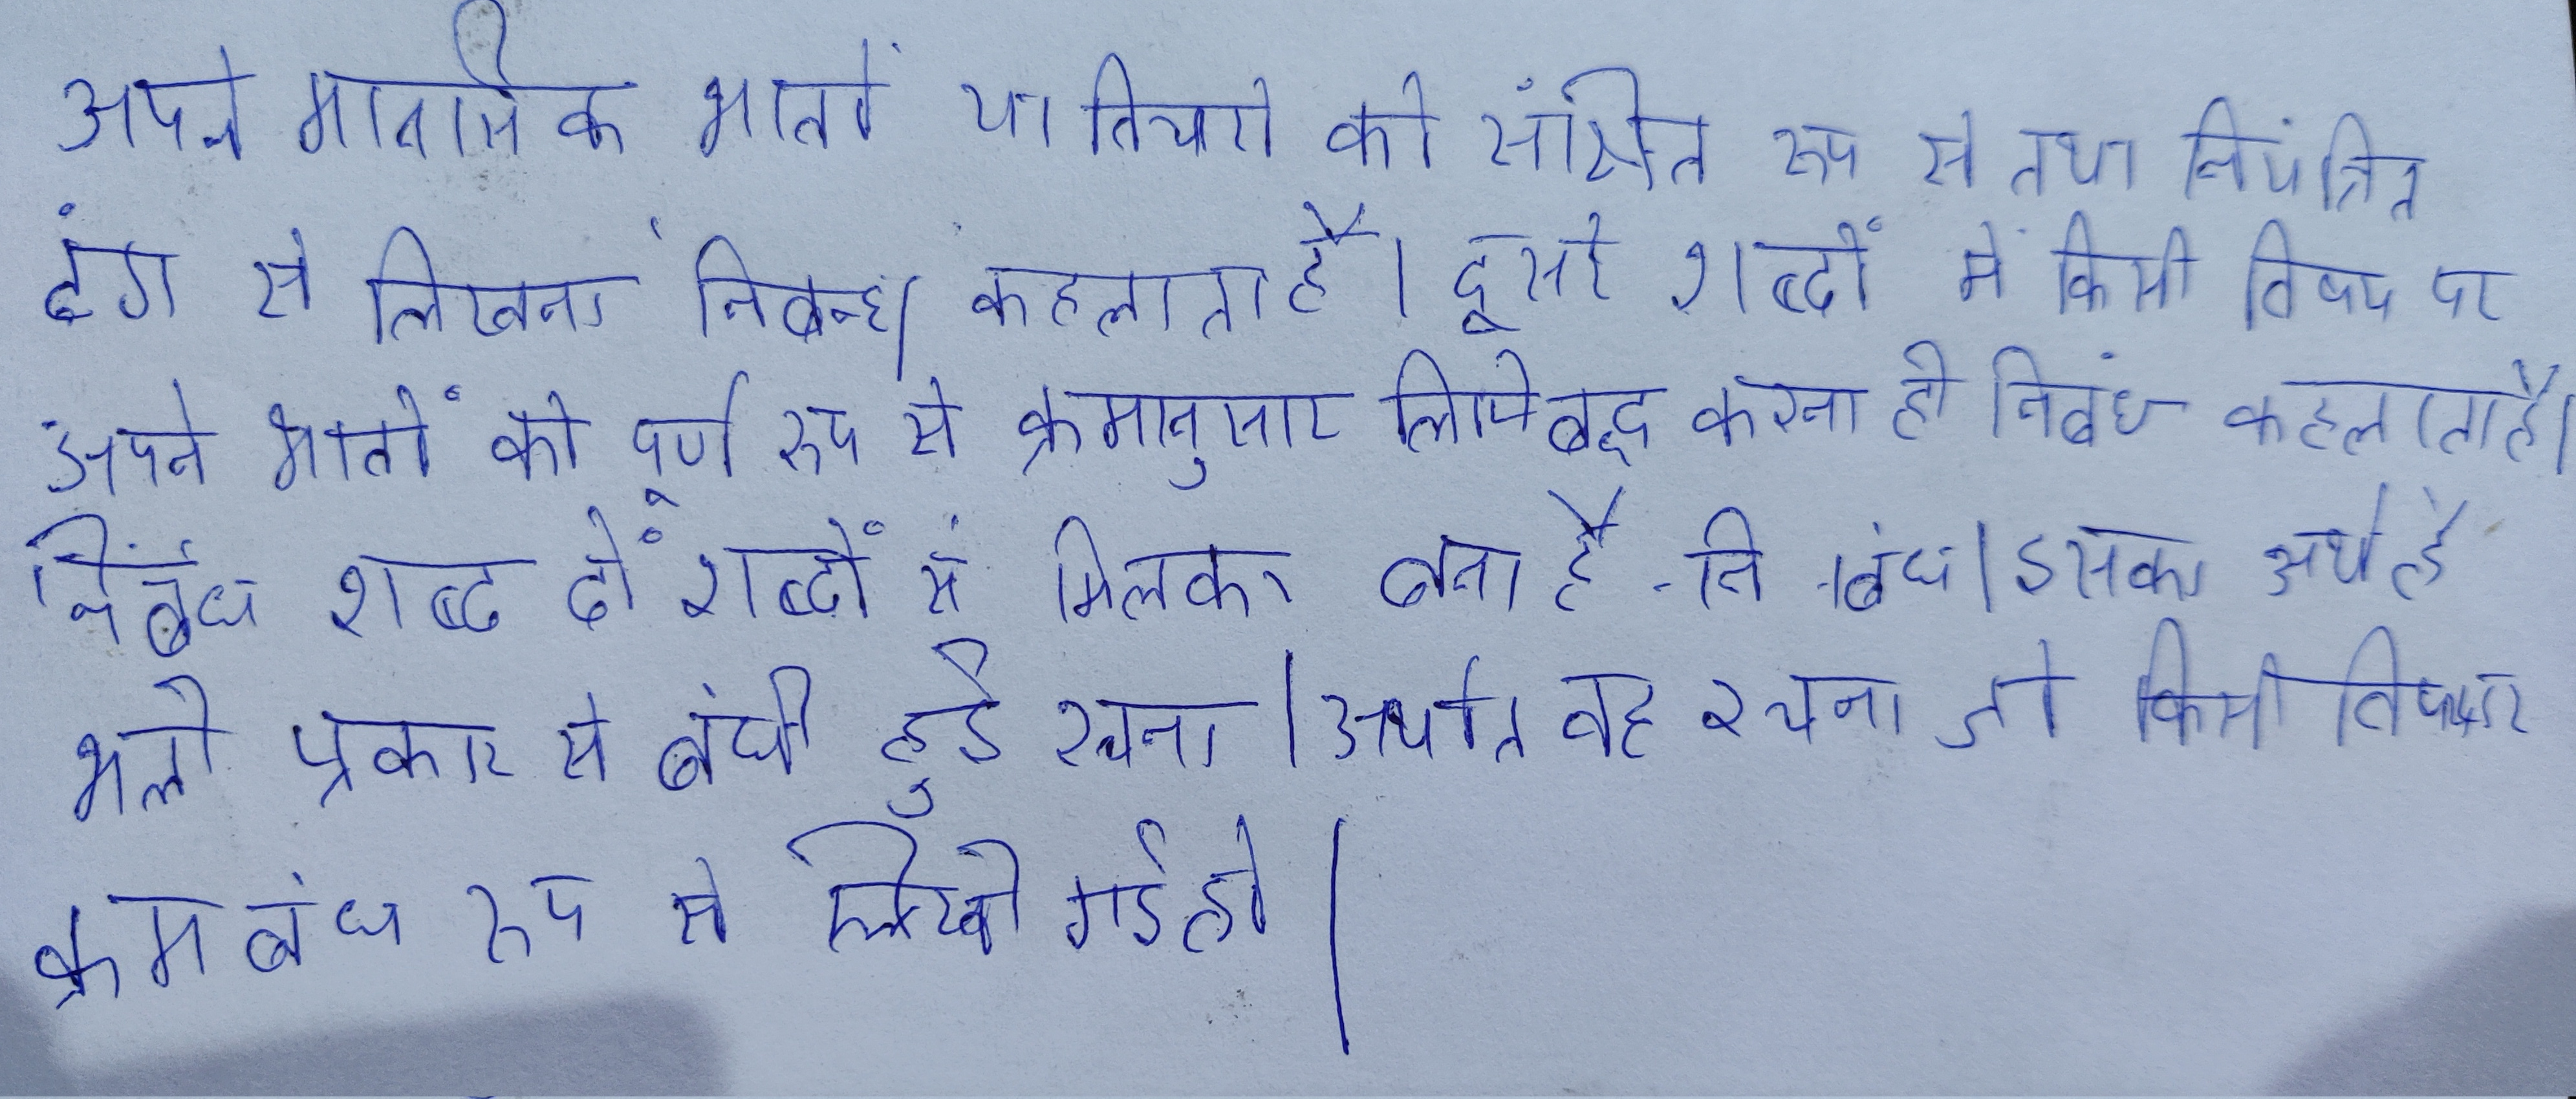 अपने मानसिक भावों या विचारो को संक्षित रूप से तथा नियंत्रित
ढंग से लिखना निबन्ध कहलाता है। दूसरे शब्दों में किसी विषय पर
अपने भावों को पूर्ण रूप से क्रमानुसार लिपिबद्ध करना ही निबंध कहलाता है।
निबंध शब्द दों शब्दों से मिलकर बना है - नि -बंध। इसका अर्थ है
भली प्रकार से बंधी हुई रचना। अर्थात वह रचना जो किसी विषय पर
क्रमबंध रूप से लिखी गई हो।